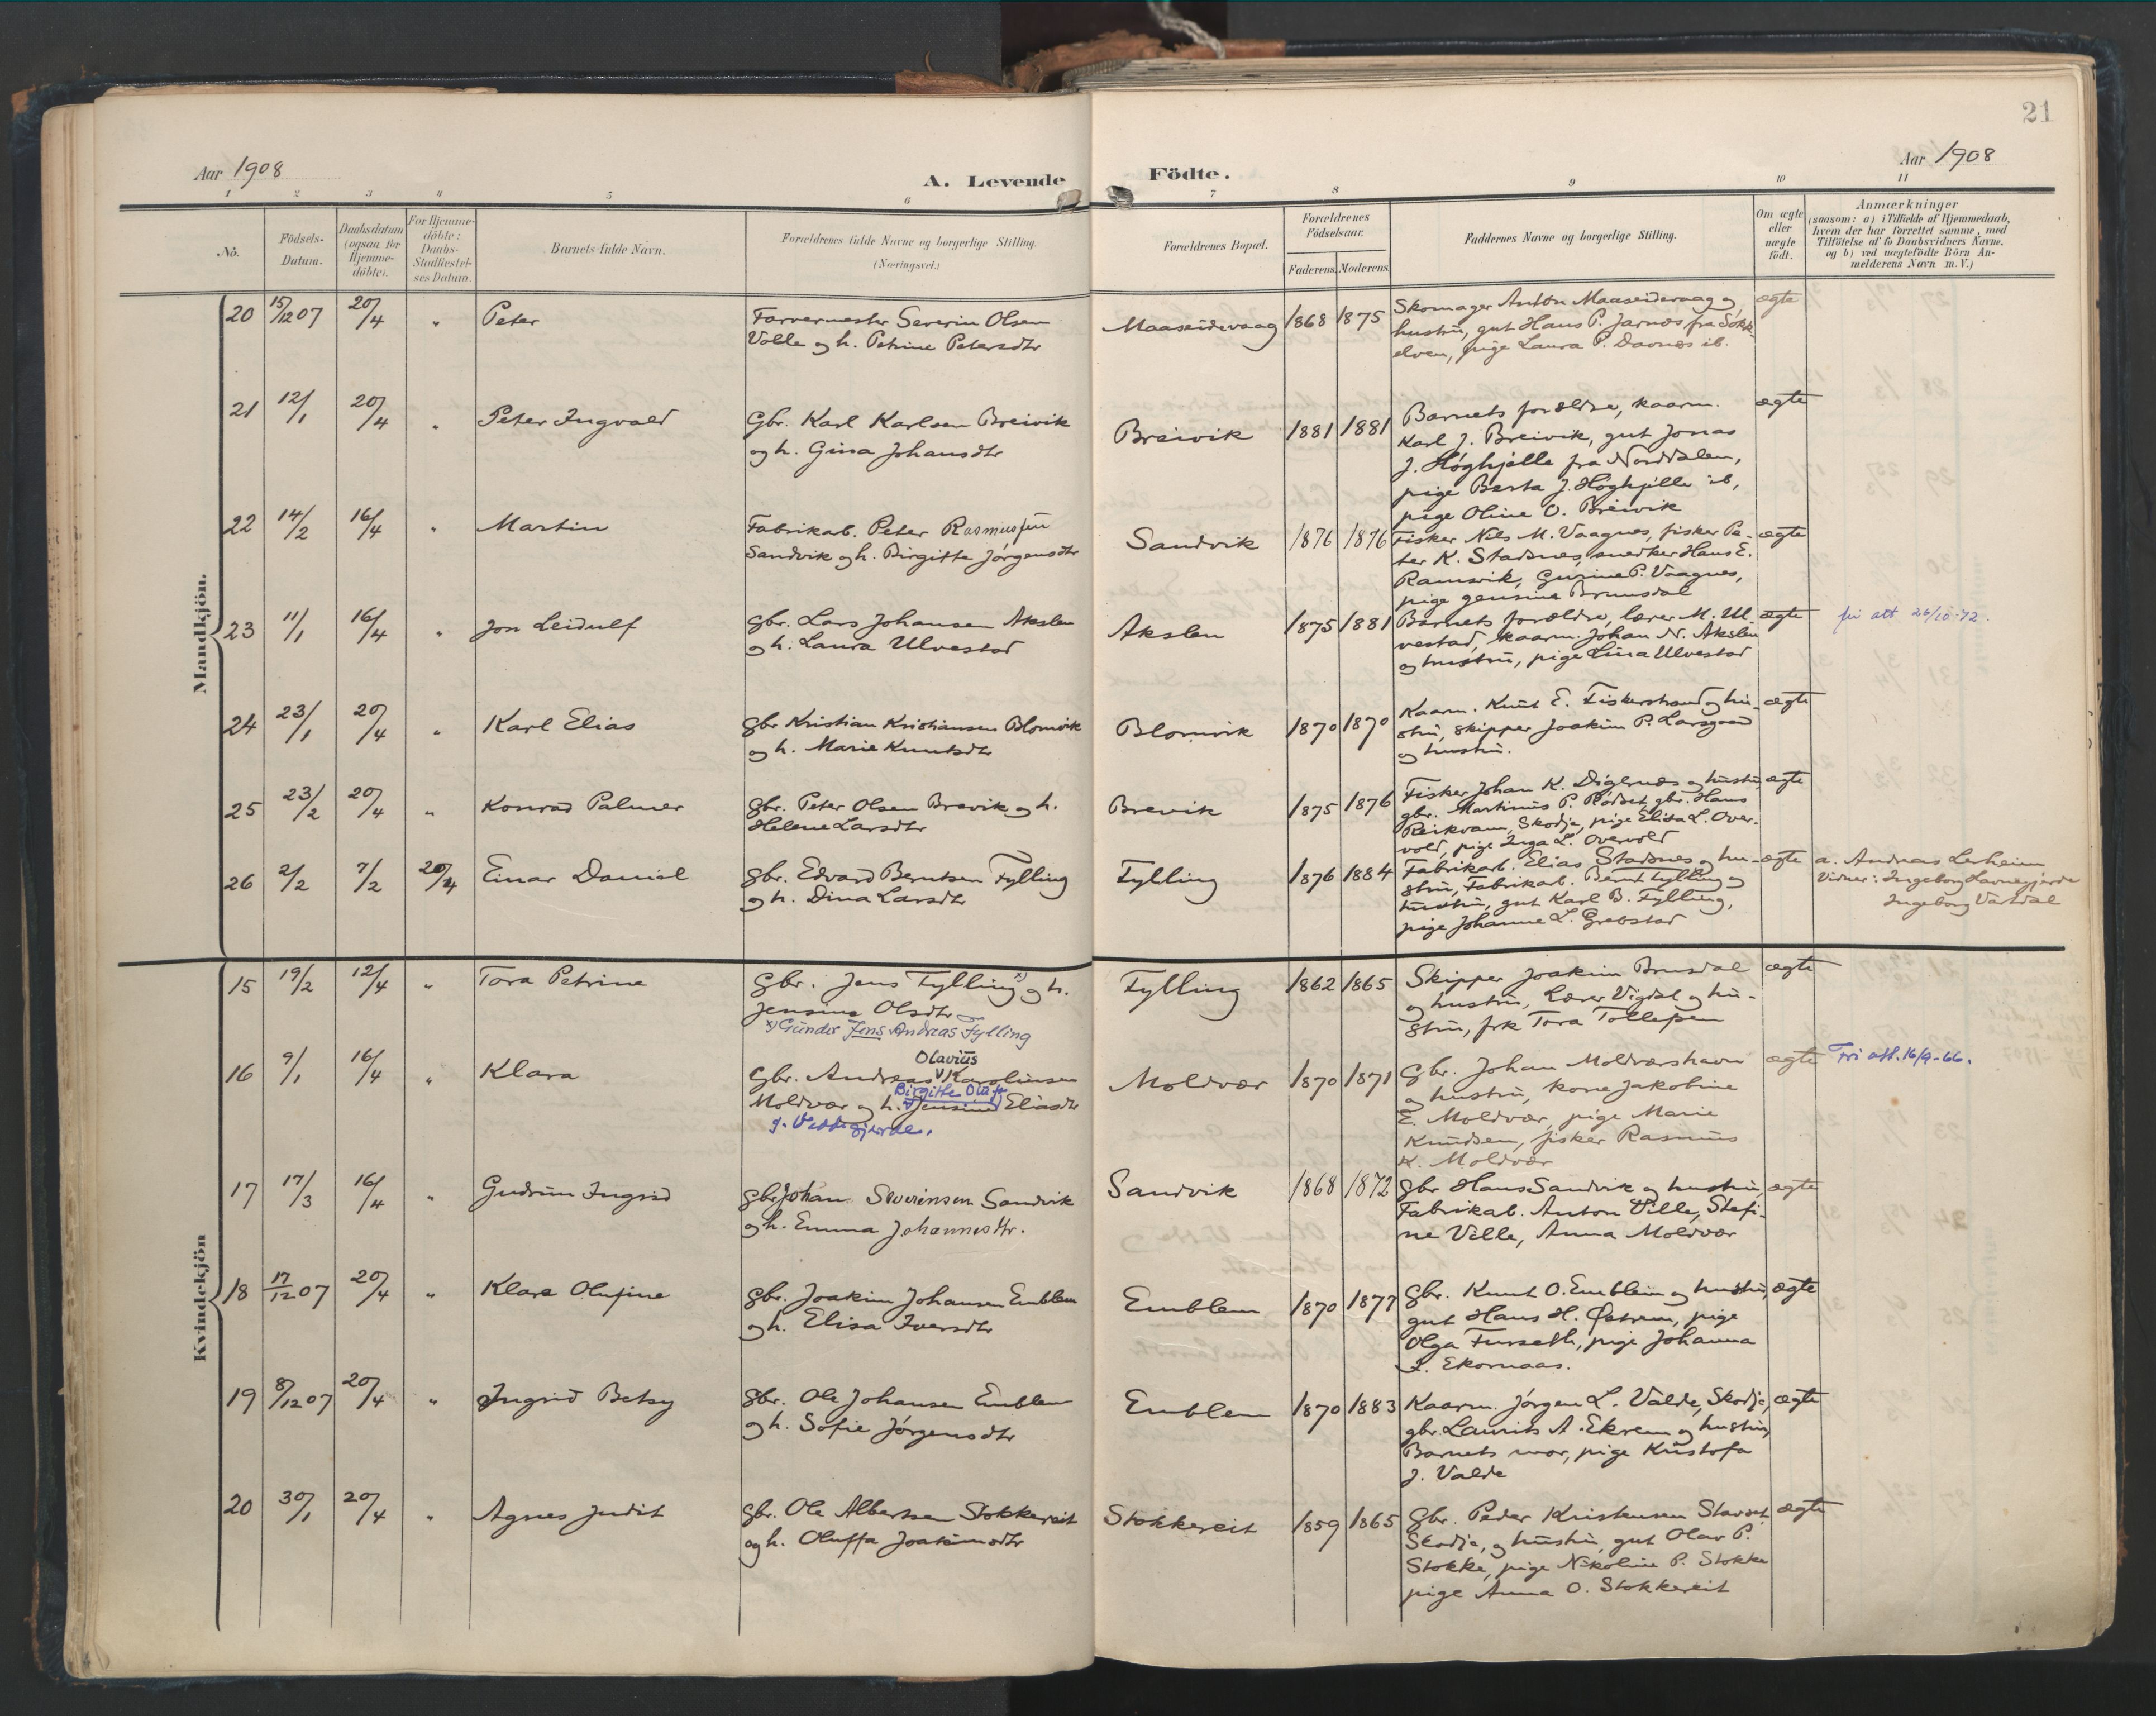 21
Aar 1908
A. Levende Födte.
Aar 1908
1 2 3 4 5 6 7 8 9 10 11
No.
Födsels-
Datum.
Daabsdatum
(ogsaa for
Hjemme-
döbte).
For Hjemme-
döbte:
Daabs-
Stadfæstel-
ses Datum.
Barnets fulde Navn.
Forældrenes fulde Navne og borgerlige Stilling.
(Næringsvei.)
Forældrenes Bopæl.
Forældrenes
Födselsaar.
Faderens. Moderens.
Faddernes Navne og borgerlige Stilling.
Om ægte
eller
uægte
födt.
Anmærkninger
(saasom: a) i Tilfælde af Hjemmedaab,
hvem der har forrettet samme, med
Tilföielse af to Daabsvidners Navne.
og b) ved uægtefödte Börn An-
melderens Navn m.V.)
Mandkjön.
20 15/12 07 20/4 " Peter
Farvermester Severin Olsen
Valle og h. Petrine Petersdtr
Maaseidevaag 1868 1875
Skomager Anton Maaseidevaag og
hustru, gut Hans P. Jarnæs fra Søkk-
elven, pige Laura P. Daonæs ib.
ægte
21 12/1 20/4 " Peter Ingvald
Gbr. Karl Karlsen Breivik
og h. Gina Johansdtr
Breivik 1881 1881
Barnets forældre, kaarm.
Karl J. Breivik, gut Jonas
J. Høghjelle fra Norddalen,
pige Berta J. Høghjelle ib,
pige Oline O. Breivik
ægte
22 14/2 16/4 " Martin
Fabrikarb. Peter Rasmussen
Sandvik og h. Birgitte Jørgensdtr
Sandvik 1876 1876
Fisker Nils M. Vaagnes, fisker Pe-
ter K. Stadsnes, snedker Hans E.
Ramsvik, Gurine P. Vaagnes,
pige Gensine Brunsdal
ægte
23 11/1 16/4 " Jon Leidulf
Gbr. Lars Johansen Akslen
og h. Laura Ulvestad
Akslen 1875 1881
Barnets forældre, lærer M. Ul-
vestad, kaarm. Johan N. Akslen
og hustru, pige Lina Ulvestad
ægte
fri att. 26/10-72.
24 23/1 20/4 " Karl Elias
Gbr Kristian Kristiansen Blomvik
og h. Marie Knutsdtr
Blomvik 1870 1870
Kaarm. Knut E. Fiskerstrand og hu-
stru, skipper Joakim P. Larsgaard
og hustru.
ægte
25 23/2 20/4 " Konrad Palmer
Gbr. Peter Olsen Brevik og h.
Helene Larsdtr
Brevik 1875 1876
Fisker Johan K. Digernæs og hustru,
gbr. Martinus P. Rødset, gbr. Hans
Reikvam, Skodje, pige Elisa L. Over-
vold, pige Inga L. Overvold
ægte
26 2/2 7/2 20/4 Einar Daniel
Gbr. Edvard Berntsen Fylling
og h. Dina Larsdtr
Fylling 1876 1884
Fabrikarb. Elias Stadsnes og hu-
stru, Fabrikarb. Bernt Fylling og
hustru, gut Karl B. Fylling,
pige Johanne L. Grebstad
ægte
a. Andreas Lerheim
Vidner: Ingeborg Larnegjerde
Ingeborg Vartdal
Kvindekjön
15 19/2 12/4 " Tora Petrine
Gbr. Jens Fylling x) og h.
Jensine Olsdtr
x) Gunder Jens Andreas Fylling
Fylling 1862 1865
Skipper Joakim Brusdal
og hustru, Lærer Vigdal og hu-
stru, frk Tora Tollefsen
ægte
16 9/1 16/4 " Klara
Olavius
Gbr. Andreas V Karolinsen
Birgitte Olufa
Moldvær og h. Jensine Eliasdtr
f. Veddegjerde.
Moldvær 1870 1871
Gbr. Johan Moldværshavn
og hustru, kone Jakobine
E. Moldvær, pige Marie
Knudsen, fisker Rasmus
K. Moldvær
ægte
Fri att. 16/9-66.
17 17/3 16/4 " Gudrun Ingrid
Gbr Johan Severinsen Sandvik
og h. Emma Johannesdtr.
Sandvik 1868 1872
Gbr Hans Sandvik og hustru,
Fabrikab. Anton Ville, Stefi-
ne Ville, Anna Moldvær
ægte
18 17/12 07 20/4 " Klara Olufine
Gbr. Joakim Johansen Emblem
og h. Elisa Iversdtr
Emblem 1870 1877
Gbr. Knut O. Emblem og hustru,
gut Hans H. Østrem, pige
Olga Furseth, pige Johanna
I. Ekornaas.
ægte
19 8/12 07 20/4 " Ingrid Betsy
Gbr. Ole Johansen Emblem
og h. Sofie Jørgensdtr
Emblem 1870 1883
Kaarm. Jørgen L. Valde, Skodje,
gbr. Laurits A. Ekrem og hustru,
Barnets mor, pige Kristofa
J. Valde
ægte
20 30/1 20/4 " Agnes Judit
Gbr. Ole Albertsen Stokkereit
og h. Oluffa Joakimsdtr
Stokkereit 1859 1865
Gbr. Peder Kristensen Stavset,
Skodje, og hustru, gut Olav P.
Stokke, pige Nikoline P. Stokke
pige Anna O. Stokkereit
ægte